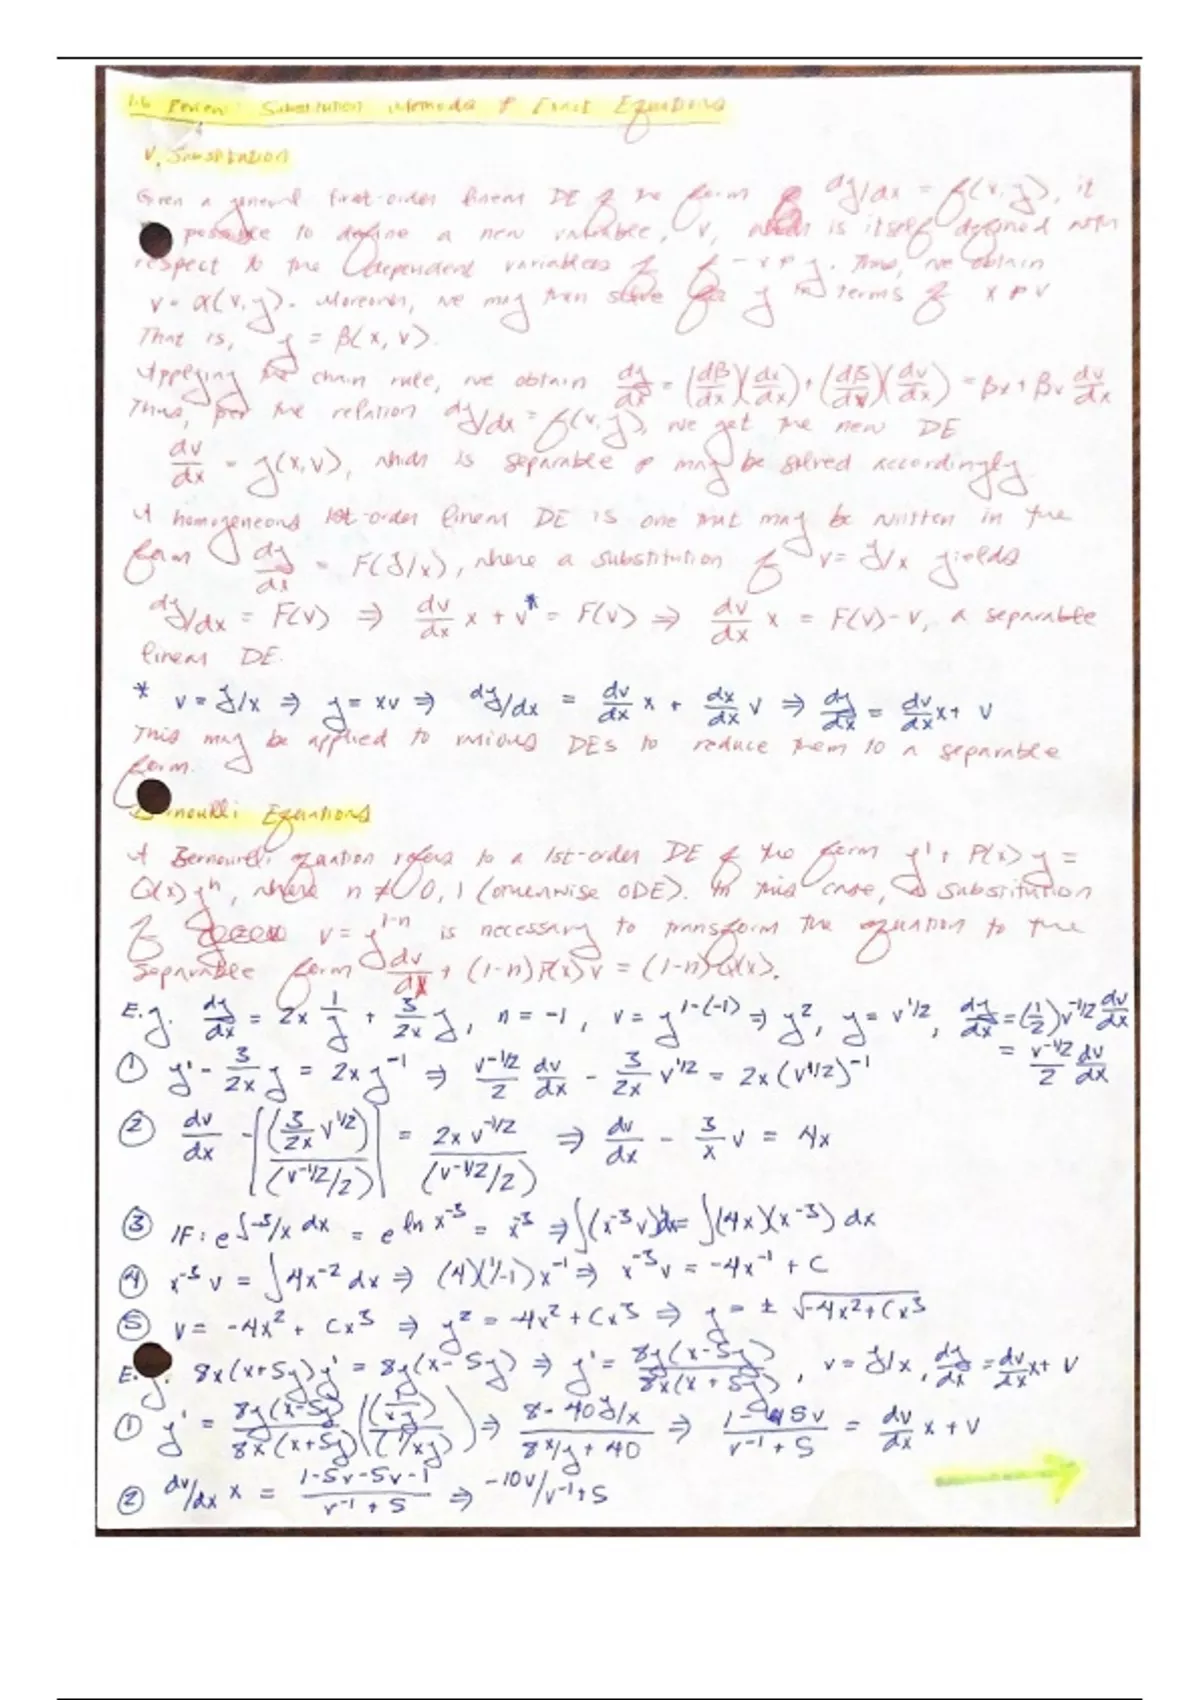 1.6 Review: Substitution Methods & Exact Equations
V. Substitution
Given a general first-order linear DE of the form dy/dx = f(x,y), it
possible to define a new variable, v, which is itself defined with
respect to the dependent variables of f - x & y. Thus, we obtain
v = α(x,y). Moreover, we may then solve for y in terms of x & v
That is, y = β(x, v).
Applying the chain rule, we obtain dy/dx = (dβ/dx)(dx/dx) + (dβ/dv)(dv/dx) = βx + βv dv/dx
Thus, per the relation dy/dx = f(x,y), we get the new DE
dv/dx = g(x,v), which is separable & may be solved accordingly.
A homogeneous 1st-order linear DE is one that may be written in the
form dy/dx = F(y/x), where a substitution of v = y/x yields
dy/dx = F(v) ⇒ dv/dx x + v* = F(v) ⇒ dv/dx x = F(v)-v, a separable
linear DE.
* v = y/x ⇒ y = xv ⇒ dy/dx = dv/dx x + dx/dx v ⇒ dy/dx = dv/dx x + v
This may be applied to various DEs to reduce them to a separable
form.
Bernoulli Equations
A Bernoulli equation refers to a 1st-order DE of the form y' + P(x)y =
Q(x)yⁿ, where n ≠ 0, 1 (otherwise ODE). In this case, a substitution
of v = y^1-n is necessary to transform the equation to the
separable form dv/dx + (1-n)P(x)v = (1-n)Q(x).
E.g. dy/dx = 2x 1/y + 3/2x y, n = -1, v = y^1-(-1) ⇒ y², y = v^1/2, dy/dx = (1/2)v^-1/2 dv/dx
= v^-1/2/2 dv/dx
① y' - 3/2x y = 2xy^-1 ⇒ v^-1/2/2 dv/dx - 3/2x v^1/2 = 2x(v^1/2)^-1
② dv/dx - [(3/2x v^1/2)/(v^-1/2/2)] = 2x v^-1/2/(v^-1/2/2) ⇒ dv/dx - 3/x v = 4x
③ IF: e^∫-3/x dx = e^ln x^-3 = x^-3 ⇒ ∫(x^-3 v)'dx = ∫(4x)(x^-3) dx
④ x^-3 v = ∫4x^-2 dx ⇒ (4)(1/-1)x^-1 ⇒ x^-3 v = -4x^-1 + C
⑤ v = -4x² + Cx³ ⇒ y² = -4x² + Cx³ ⇒ y = ± √-4x²+Cx³
E.g. 8x(x+5y)y' = 8y(x-5y) ⇒ y' = 8y(x-5y)/8x(x+5y), v = y/x, dy/dx = dv/dx x + v
① y' = 8y(x-5y)/8x(x+5y) ((1/xy)/(1/xy)) ⇒ 8-40y/x / 8x/y + 40 ⇒ 1-5v/v^-1+5 = dv/dx x + v
② dv/dx x = 1-5v-5v-1/v^-1+5 ⇒ -10v/v^-1+5